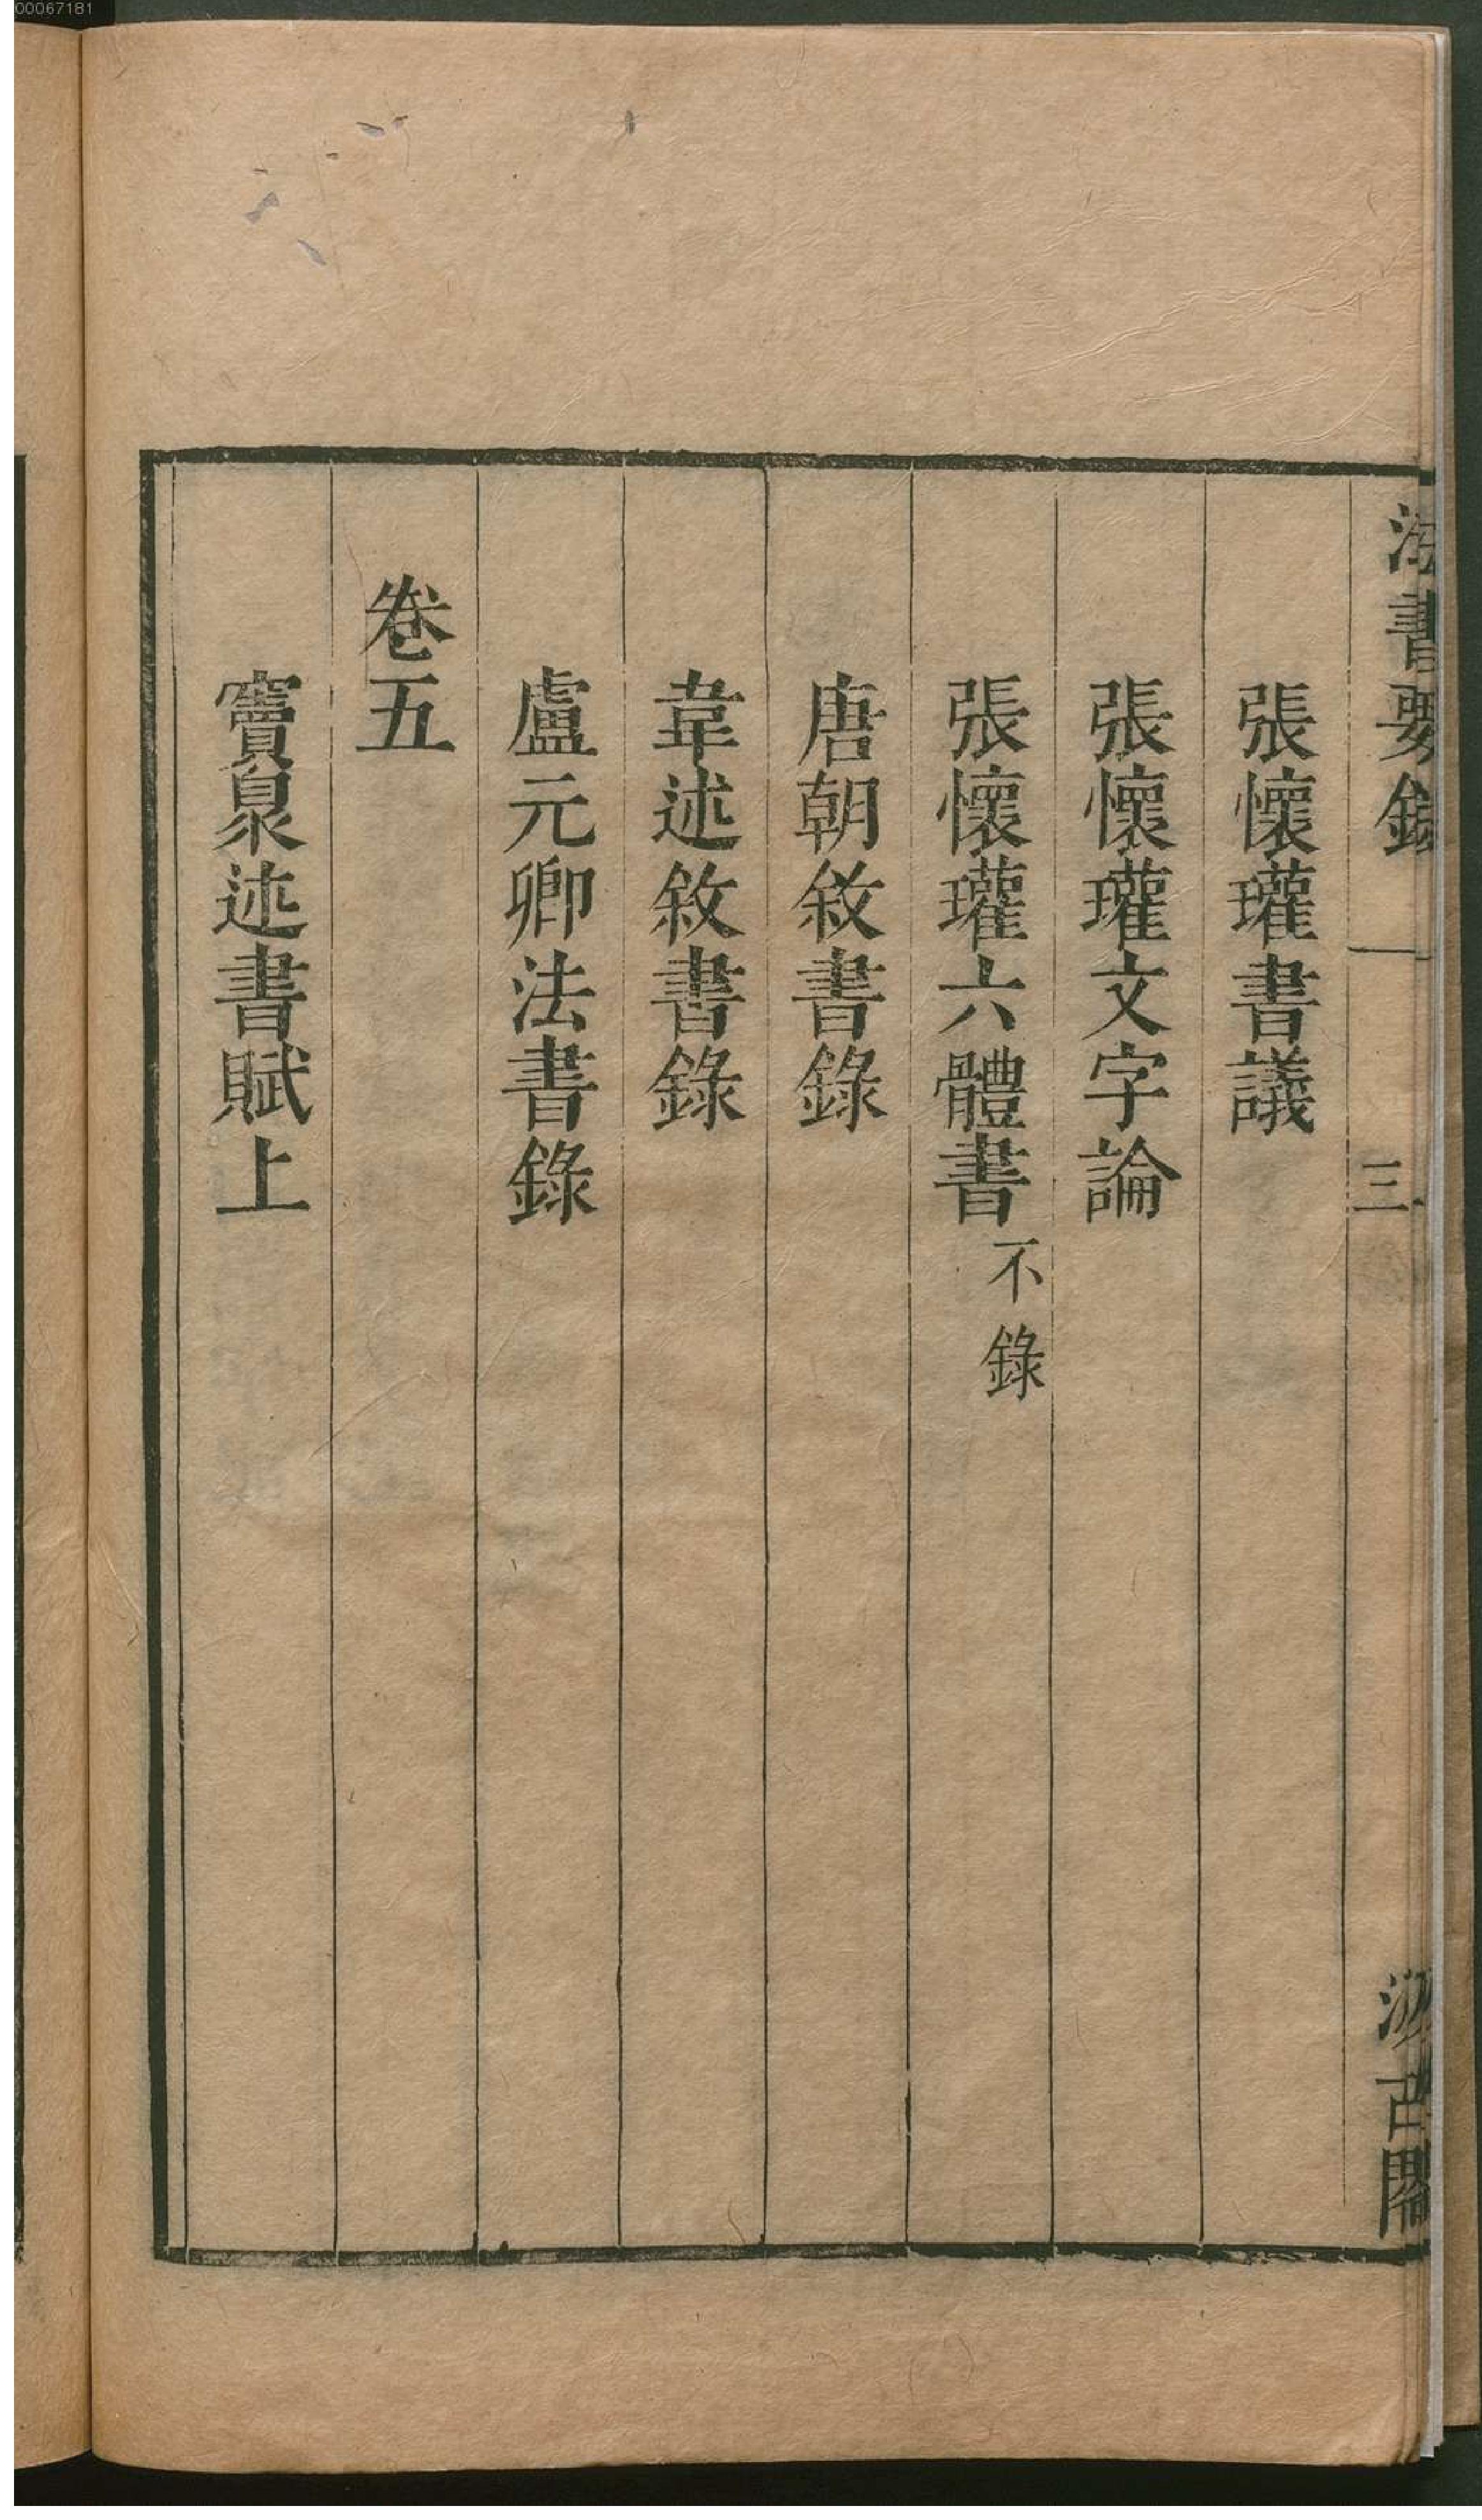 法書要錄
三
汲古閣
張懷瓘書議
張懷瓘文字論
張懷瓘六體書不錄
唐朝敘書錄
韋述敘書錄
盧元卿法書錄
卷五
竇臮述書賦上
00067181